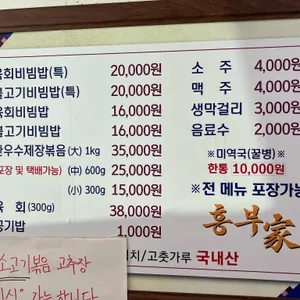 육회비빔밥(특) 20,000원
불고기비빔밥(특) 20,000원
육회비빔밥 16,000원
불고기비빔밥 16,000원
한우수제장볶음(大) 1kg 35,000원
포장 및 택배가능) (中) 600g 25,000원
(小) 300g 15,000원
육 회(300g) 38,000원
공기밥 1,000원
소 주 4,000원
맥 주 4,000원
생막걸리 3,000원
음료수 2,000원
※미역국(꿀병)※
한통 10,000원
※전 메뉴 포장가능
흥부家
김치/고춧가루 국내산
소고기볶음 고추장
가능합니다